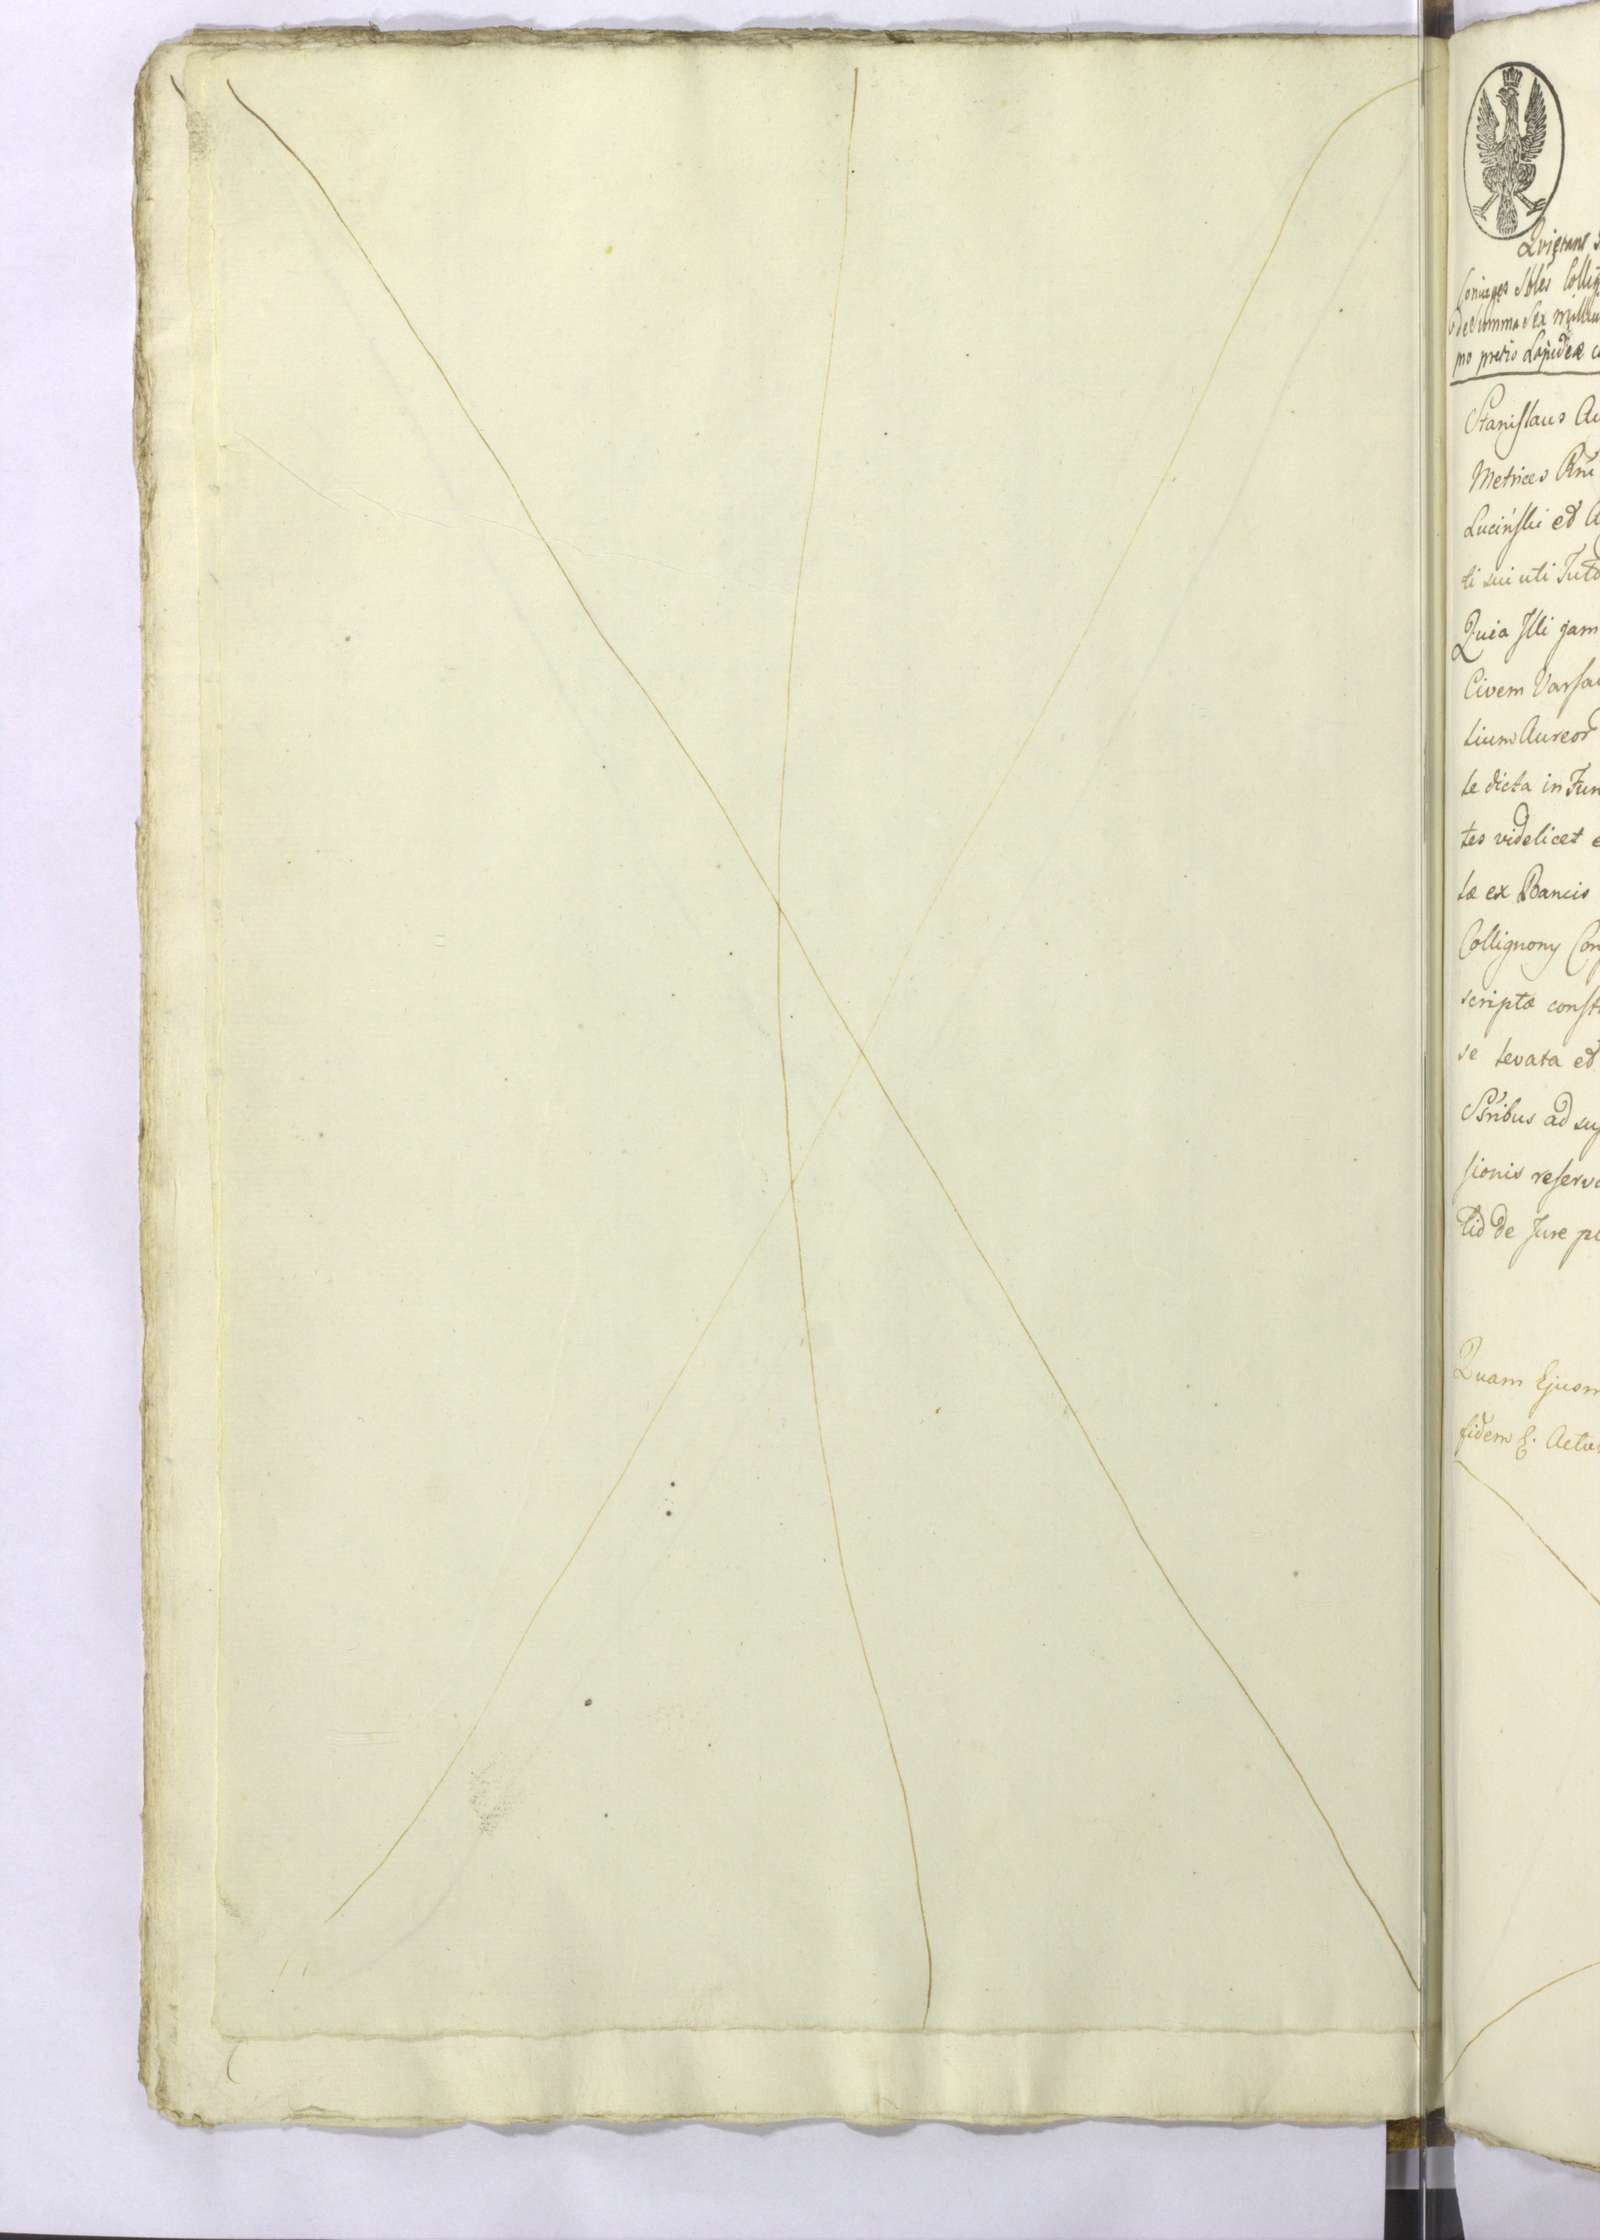 Quietans
Coniuges Sbles Colli
de Summa Sex mille
no pretio Lapideæ
Stanislaus Au
Metrices
Luciński et A
ti sui uti Tuto
Quia Illi jam
Civem Varsa
lium Aureor
te dicta in Fun
tes videlicet e
tæ ex Bancis
Collignony Con
scriptæ const
se levata et
ad su
sionis reserv
de Jure p
Quam Ejusm
fidem Actu